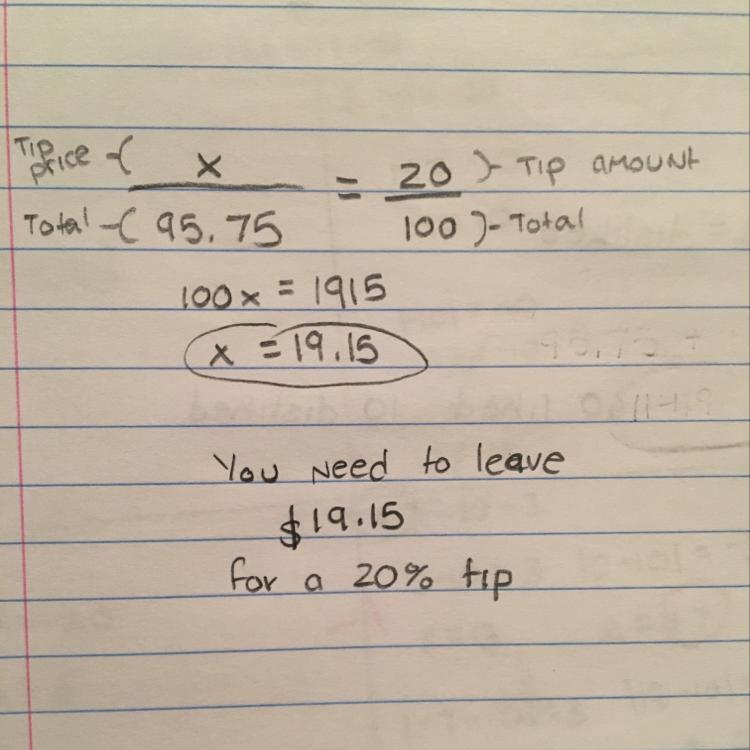 Tip price -( x = 20 )- Tip amount
Total -( 95.75 100 )- Total
100x = 1915
x = 19.15
You need to leave
$19.15
for a 20% tip